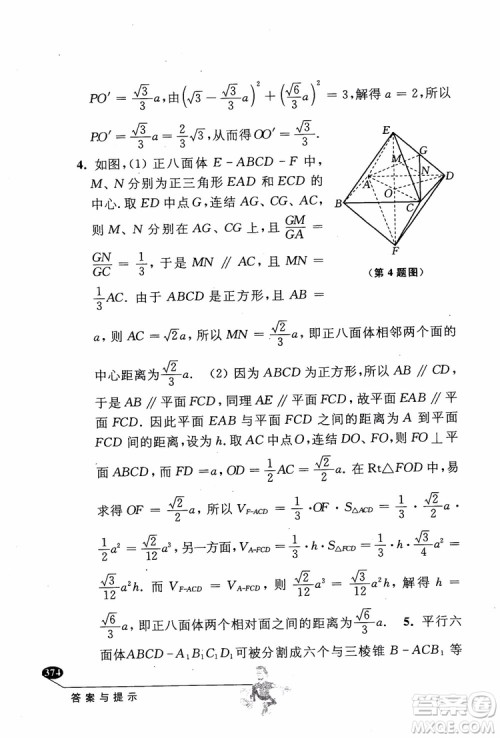 PO′ = √3/3 a，由(√3 - √3/3 a)² + (√6/3 a)² = 3，解得 a = 2，所以
PO′ = √3/3 a = 2/3 √3，从而得 OO′ = √3/3.
4. 如图，(1) 正八面体 E - ABCD - F 中，
M、N 分别为正三角形 EAD 和 ECD 的
中心. 取 ED 中点 G，连结 AG、CG，
则 M、N 分别在 AG、CG 上. GM/GA =
GN/GC = 1/3，于是 MN ∥ AC，MN =
1/3 AC. 由于 ABCD 是正方形，AB =
E
M
G
A
N
D
O
B
C
F
(第 4 题图)
a，则 AC = √2 a，所以 MN = √2/3 a，即正八面体相邻两个面的
中心距离为 √2/3 a. (2) 因为 ABCD 为正方形，AB ∥ CD，于是
AB ∥ 平面 FCD，同理 AE ∥ 平面 FCD，故平面 EAB ∥ 平面
FCD. 因此平面 EAB 与平面 FCD 之间的距离为 A 到平面
FCD 间的距离，设为 h. 取 AC 中点 O，连结 OF，则 FO ⊥ 平
面 ABCD，而 FD = a，OD = 1/2 AC = √2/2 a. 在 Rt△FOD 中，易
求得 OF = √2/2 a，所以 V_{F-ACD} = 1/3 · OF · S_{△ACD} = 1/3 · √2/2 a ·
1/2 a² = √2/12 a³，另一方面，V_{A-FCD} = 1/3 · h · S_{△FCD} = 1/3 h · √3/4 a² =
√3/12 a²h. 而 V_{F-ACD} = V_{A-FCD}，所以 √3/12 a²h = √2/12 a³，解得 h =
√6/3 a，即正八面体两个相对面之间的距离为 √6/3 a. 5. 平行六
面体 ABCD - A₁B₁C₁D₁ 可被分割成六个与三棱锥 B - A₁B₁C₁ 等
374
答案与提示